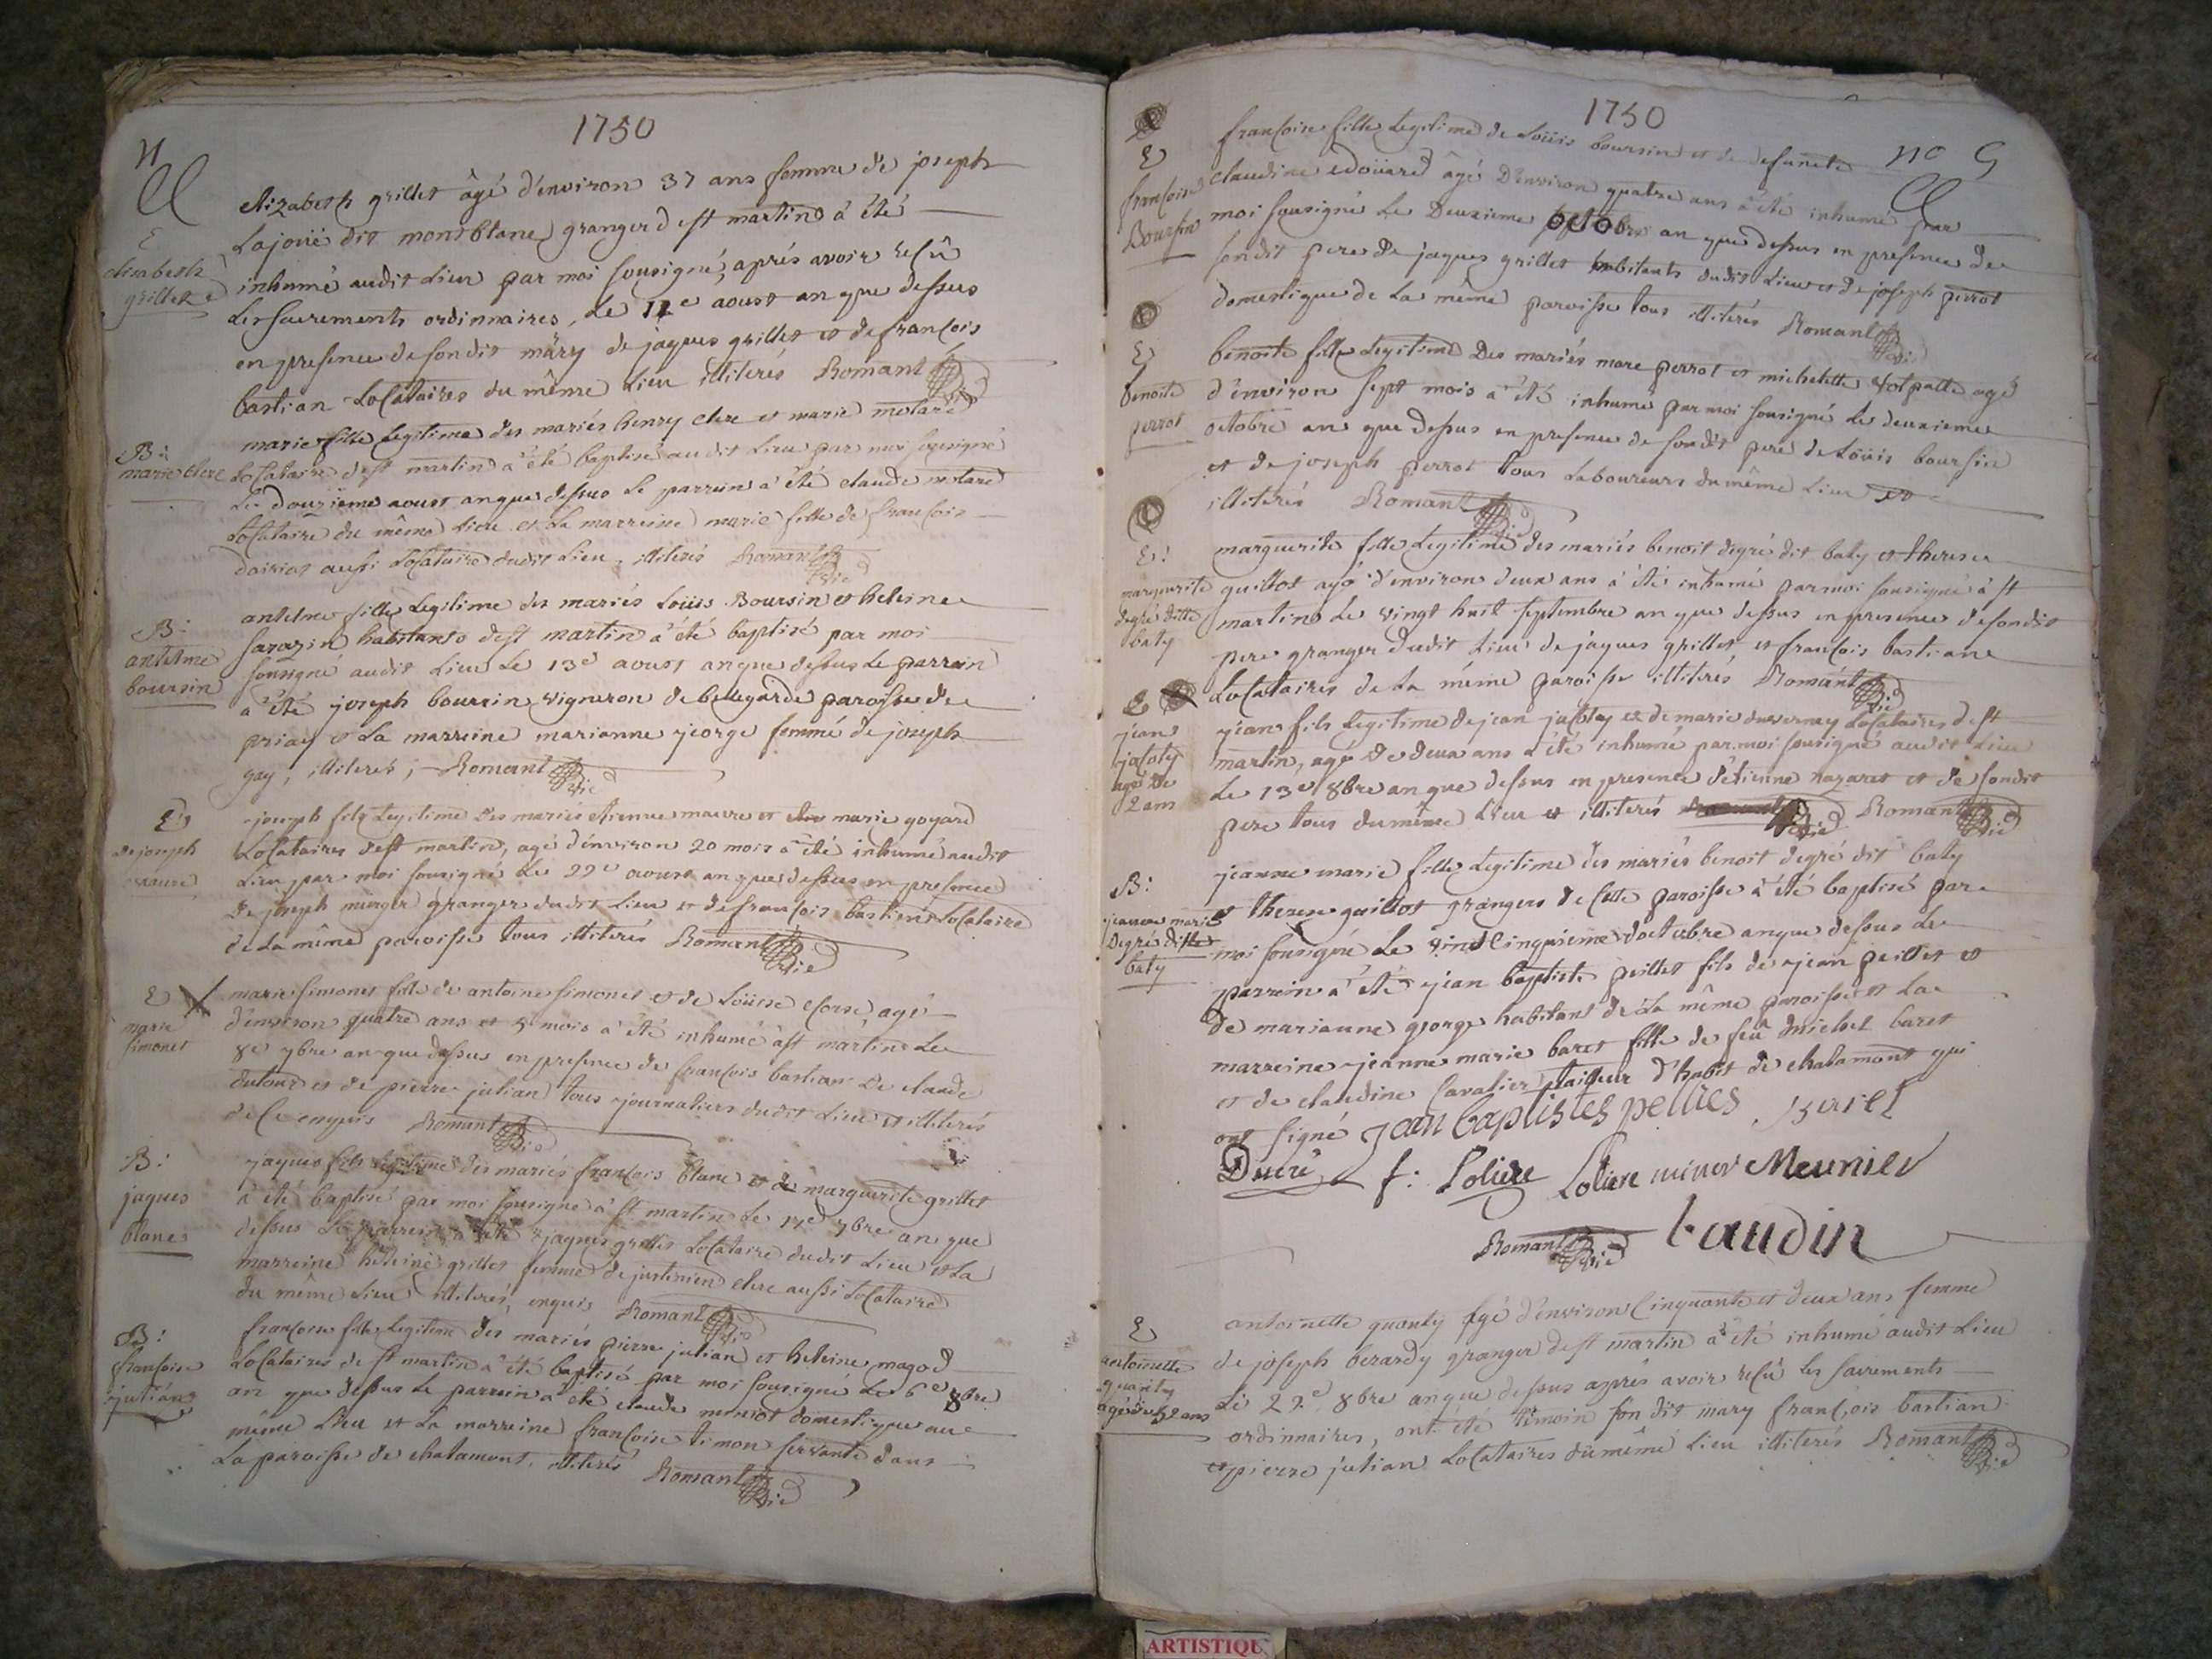 1750
elizabeth grillet âgé d'environ 37 ans femme de joseph
Lajoüé dit montblanc granger d st martin à été
elisabeth
grillet
inhumé audit Lieu par moi sousigné, aprés avoir reçû
Les sacrements ordinnaires, Le 12e aoust an que dessus
en presence de son dit mary de jaques grillet et de francois
bastian Locataires du même Lieu illiterés Romant
B:
marie clerc
marie fille Legitime des mariés henry clere et marie motard
Locataire de st martin à été baptisé au dit Lieu par moi sousigné
Le douzieme aoust an que dessus Le parrein a été claude motard
Locataire du même Lieu et La marreine marie fille de francois
aussi Locataire dudit Lieu, illiterés Romant
B:
antelme
boursin
antelme fille Legitime des mariés Loüis Boursin et heleine
sarazin habitants de st martin à été baptisé par moi
sousigné audit Lieu Le 13e aoust an que dessus Le parrein
a été joseph boursin vigneron de bellegarde paroisse de
priay et La marreine marianne jeorge femme de joseph
gay, illiterés, Romant
E
de joseph
maure
joseph fils Legitime des mariés etienne maure et marie goyard
Locataires de st martin, agé d'environ 20 mois à été inhumé audit
Lieu par moi sousigné Le 22e aoust an que dessus en presence
de joseph murger granger dudit Lieu et de francois bastien Locataire
de La même paroisse tous illiterés Romant
E
marie
simonet
marie simonet fille de antoine simonet et de Loüise agé
d'environ quatre ans et 5 mois à été inhumé à st martin Le
8e 7bre an que dessus en presence de francois bastian De claude
dufour et de pierre julian tous journaliers dudit Lieu et illiterés
de ce enquis Romant
B:
jaques
blanc
jaques fils Legitime des mariés francois blanc et de marguerite grillet
à été baptisé par moi sousigné à st martin Le 17e 7bre an que
dessus Le parrein a été jaques grillet Locataire dudit Lieu et La
marreine heleine grillet femme de justinien clere aussi Locataire
du même Lieu illiterés, enquis Romant
B:
francoise
julian
francoise fille Legitime des mariés pierre julian et heleine magod
Locataires de st martin à été baptisé par moi sousigné Le 6e 8bre
an que dessus Le parrein a été claude moniot domestique au
même Lieu et La marreine francoise timon servante dans
La paroisse de chalamont, illiterés Romant
1750
no 5
E
francoise
Boursin
francoise fille Legitime de Loüis boursin et de defuncte
claudine edoüard âgé D'environ quatre ans à été inhumé par
moi sousigné Le Deuxieme octobre an que dessus en presence de
son dit pere De jaques grillet habitants dudit Lieu et de joseph perrot
domestique de La même paroisse tous illiterés Romant
E
benoite
perrot
benoite fille Legitime Des mariés marc perrot et michelette Volpatte agé
d'environ sept mois a été inhumé par moi sousigné Le deuxieme
octobre an que dessus en presence de son dit pere de Loüis boursin
et de joseph perrot tous Laboureurs du même Lieu et
illiterés Romant
E:
marguerite
degré ditte
baty
marguerite fille Legitime des mariés benoit degré dit baty et therese
guillot agé d'environ deux ans à été inhumé par moi sousigné à st
martin Le vingt huit septembre an que dessus en presence de son dit
pere granger dudit Lieu de jaques grillet et francois bastian
Locataires de La même paroisse illiterés Romant
E
jean
jacoty
agé De
2 ans
jean fils Legitime de jean jacoty et de marie duverney Locataires de st
martin, agé De deux ans à été inhumé par moi sousigné audit Lieu
Le 13e 8bre an que dessus en presence d'etienne nazaret et de son dit
pere tous du même Lieu et illiterés Romant
B:
jeanne marie
Degré ditte
baty
jeanne marie fille Legitime des mariés benoit degré dit baty
et therese guillot grangers de Cette paroisse à été baptisé par
moi sousigné Le vint Cinquieme d'octobre an que dessus Le
parrein a été jean baptiste peillet fils de jean peillet et
de marianne george habitant de La même paroisse et La
marreine jeanne marie baret fille de feu michel baret
et de claudine Cavalier tailleur d'habit de chalamont qui
ont signé jean baptistes pellies
Ducré f: Loliere Loliere miner Meunier
Romant baudin
E
antoinette
quanty
agé de 52 ans
antoinette quanty âgé d'environ Cinquante et deux ans femme
de joseph berardy granger de st martin à été inhumé audit Lieu
Le 22e 8bre an que dessus aprés avoir reçû Les sacrements
ordinnaires, ont été témoin son dit mary francois bastian
et pierre julian Locataires du même Lieu illiterés Romant
ARTISTIQU